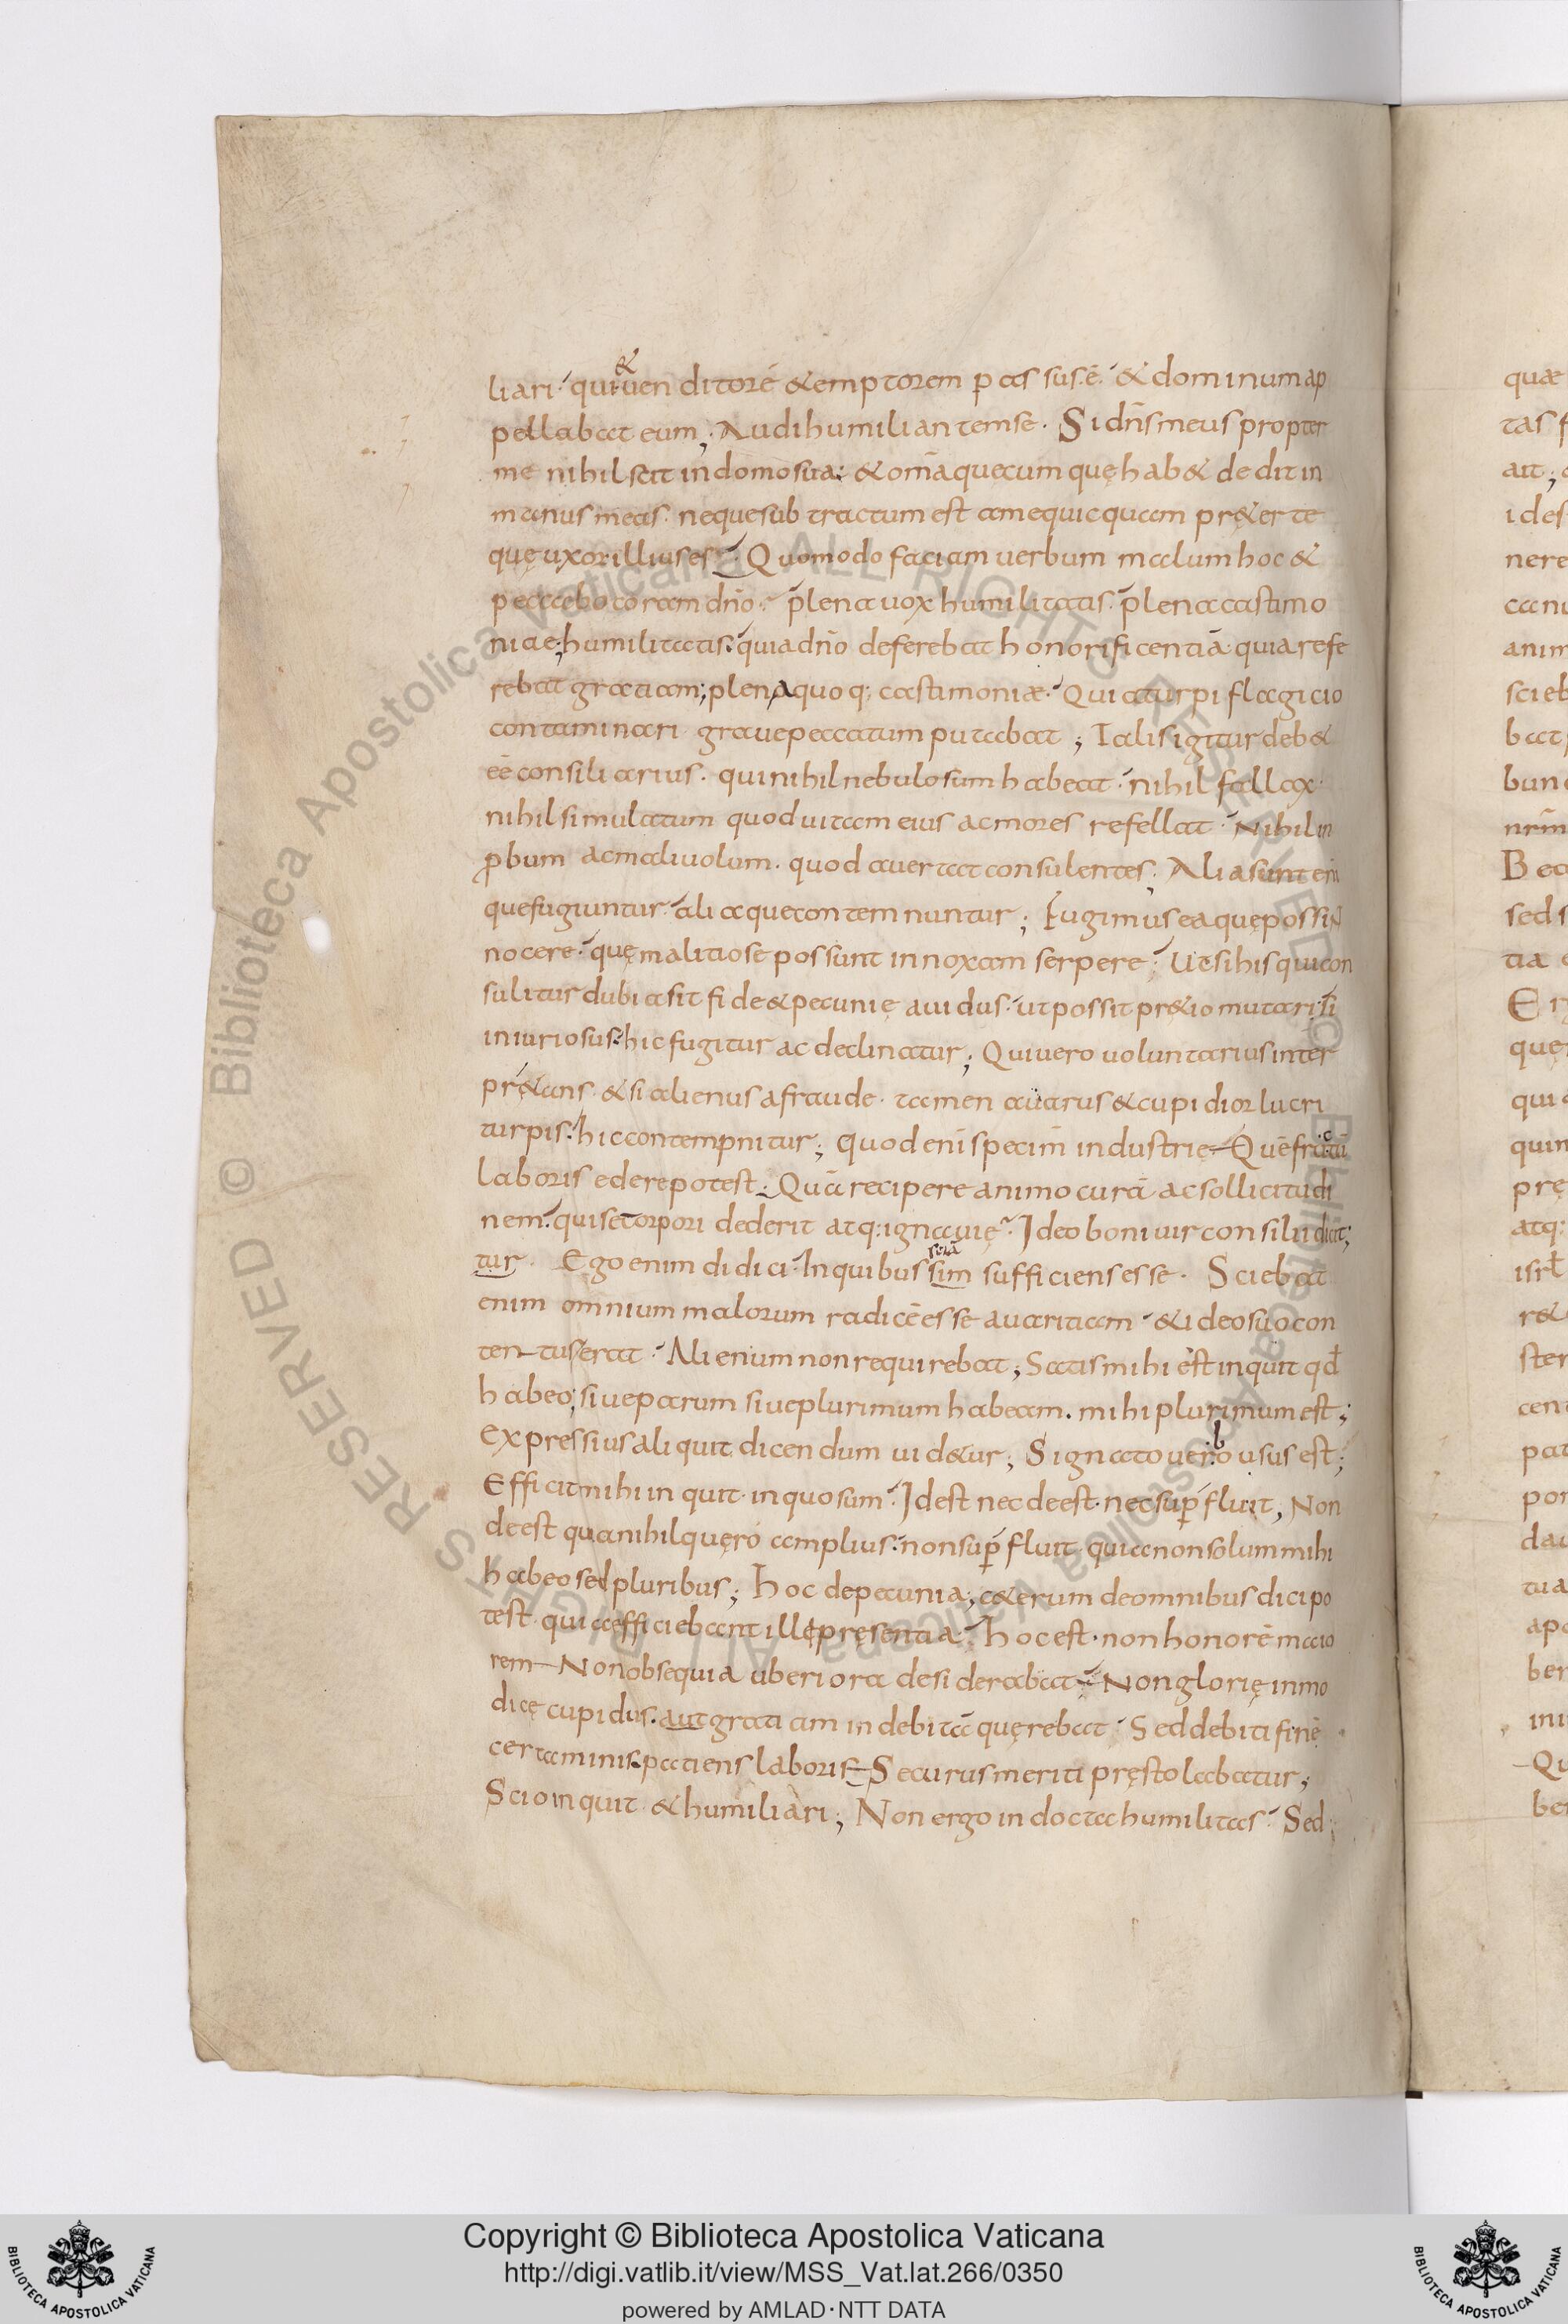 &
liari· qui uenditorē & emptorem passus·ē· & dominum ap
pellabat eum; Audi humiliantem se· Si dn̄s meus propter
me nihil scit in domo sua: & om̄a quecumquę hab& dedit in
manus meas· neque subtractum est a me quicquam pr&er te
quę uxor illius es· Quomodo faciam uerbum malum hoc &
peccabo coram dn̄o· plena uox humilitatis· plena castimo
niae; humilitatis· quia dn̄o deferebat honorificentiā quia refe
rebat gratiam; plena quoq; castimoniæ· Qui a turpi flagicio
contaminari graue peccatum putabat; Talis igitur deb&
eē consiliarius· qui nihil nebulosum habeat· nihil fallax·
nihil simulatum quod uitam eius ac mores refellat· Nihil in
p̱bum ac maliuolum· quod auertat consulentes; Alia sunt eni
que fugiuntur· alia que contemnuntur; Fugimus ea quę possiN
nocere· quę malitiose possunt in noxam serpere· Ut si his qui con
sulitur dubia sit fide & pecunię auidus· ut possit pr&io mutari· si
iniuriosus· hic fugitur ac declinatur; Qui uero uoluntarius inter
pr&ans· & si alienus a fraude· tamen auarus & cupidior lucri
turpis· hic contempnitur; quod enī specim̄ industrię Quē fructū
laboris edere potest· Quā recipere animo curā ac sollicitudi
nem· qui se torpori dederit atq: ignauię· Ideo boni uir consilii dicit;
tur· Ego enim didici· In quibus sim sufficiens esse· Sciebat
enim omnium malorum radicē esse auaritiam· & ideo suo con
tentus erat· Alienum non requirebat; Satis mihi est inquit qđ
habeo; siue parum siue plurimum habeam· mihi plurimum est;
Expressius aliquit dicendum uid&ur; Signato uero usus est;
Efficit mihi inquit· in quo sum· Id est nec deest· nec sup̄fluit, Non
deest qua nihil quęro amplius· non sup̄fluit· quia non solum mihi
habeo sed pluribus; hoc de pecunia; c&erum de omnibus dici po
test· quia efficiebant illę pręsentia· hoc est· non honorē maio
rem Non obsequia uberiora desiderabat· Non glorię inmo
dicę cupidus· aut gratiam indebitā quęrebat· Sed debiti finē
certaminis· patiens laboris Securus meriti pręstolabatur;
Scio inquit· & humiliari; Non ergo indocta humilitas· Sed;
quæ
tas f
ait;
ides
nere
anim
scieb
bat
bun
sed s
tia
quę
qui
quin
pre
atq:
isrł
r&
ster
cent
pat
por
dau
tua
apo
ber
ini
Qu
ber
Copyright © Biblioteca Apostolica Vaticana
http://digi.vatlib.it/view/MSS_Vat.lat.266/0350
powered by AMLAD·NTT DATA
BIBLIOTECA APOSTOLICA VATICANA
BIBLIOTECA APOSTOLICA VATICANA